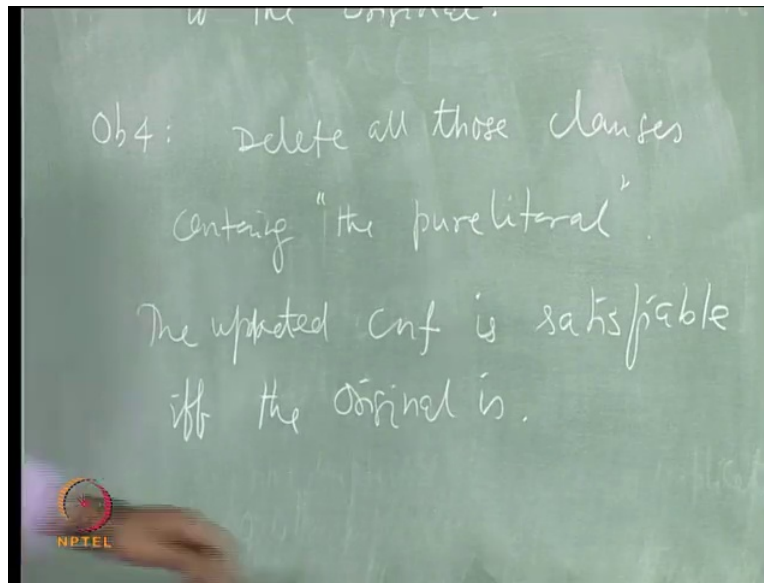 the original.
Ob4: Delete all those clauses
containg "the pure literal".
The updated cnf is satisfiable
iff the original is.
NPTEL